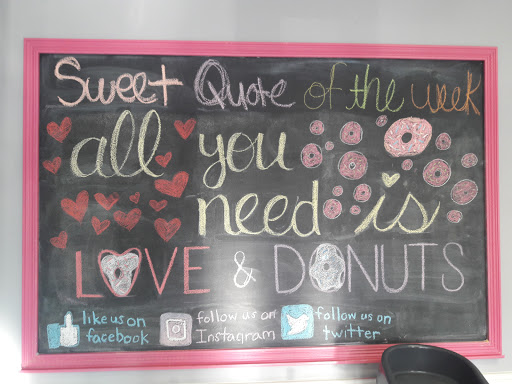 Sweet Quote of the week
all you
need is
LOVE & DONUTS
like us on
facebook
follow us on
Instagram
follow us on
twitter